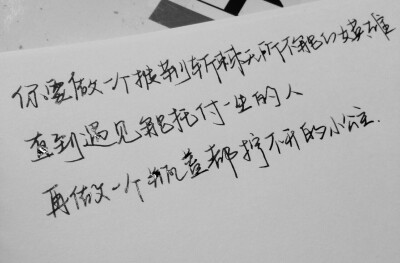 你要做一个披荆斩棘无所不能的女英雄
直到遇见能托付一生的人
再做一个瓶盖都拧不开的小公主.